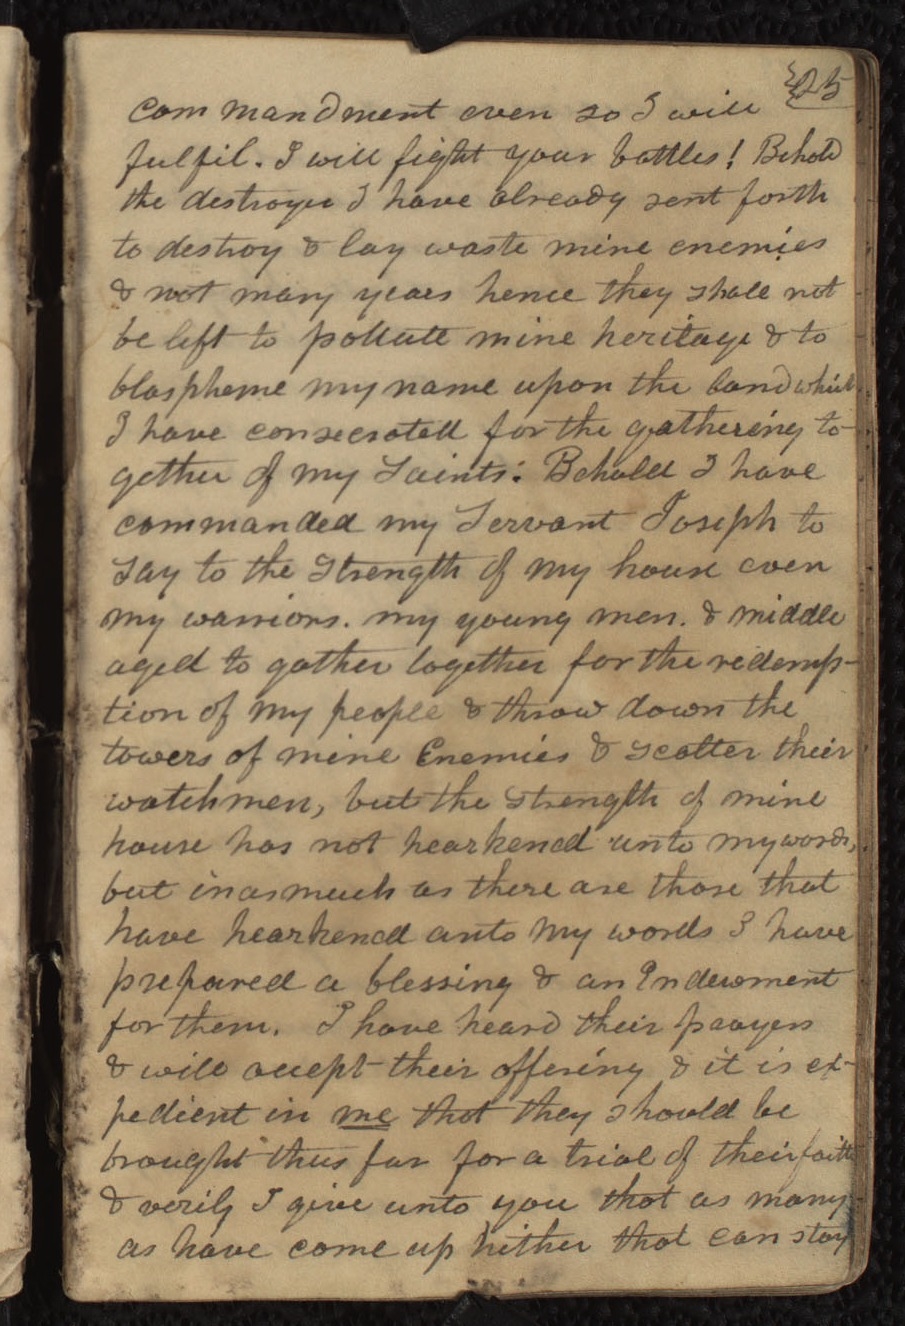 25
commandment even so I will
fulfil. I will fight your battles! Behold
the destroyer I have already sent forth
to destroy & lay waste mine enemies
& not many years hence they shall not
be left to pollute mine heritage & to
blaspheme my name upon the land which
I have consecrated for the gathering to-
gether of my Saints: Behold I have
commanded my Servant Joseph to
Say to the Strength of my house even
my warriors. my young men. & middle
aged to gather together for the redemp-
tion of my people & throw down the
towers of mine Enemies & scatter their
watchmen, but the strength of mine
house has not hearkened unto my words,
but inasmuch as there are those that
have hearkened unto my words I have
prepared a blessing & an Endewment
for them. I have heard their prayers
& will accept their offering & it is ex-
pedient in me that they should be
brought thus far for a trial of their faith
& verily I give unto you that as many
as have come up hither that can stay